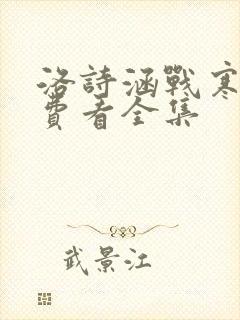 洛詩涵戰寒
費看全集
武景江